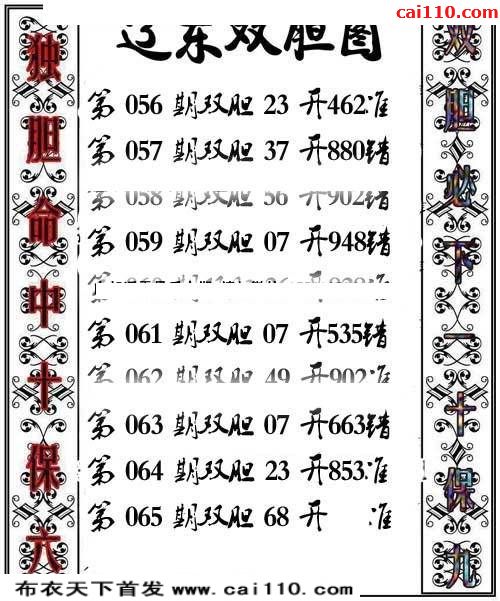 cai110.com
辽东双胆图
独胆命中十保六
第 056 期双胆 23 开462准
第 057 期双胆 37 开880错
第 058 期双胆 56 开902错
第 059 期双胆 07 开948错
第 061 期双胆 07 开535错
第 062 期双胆 49 开902准
第 063 期双胆 07 开663错
第 064 期双胆 23 开853准
第 065 期双胆 68 开 准
双胆必下一十保九
布衣天下首发 www.cai110.com